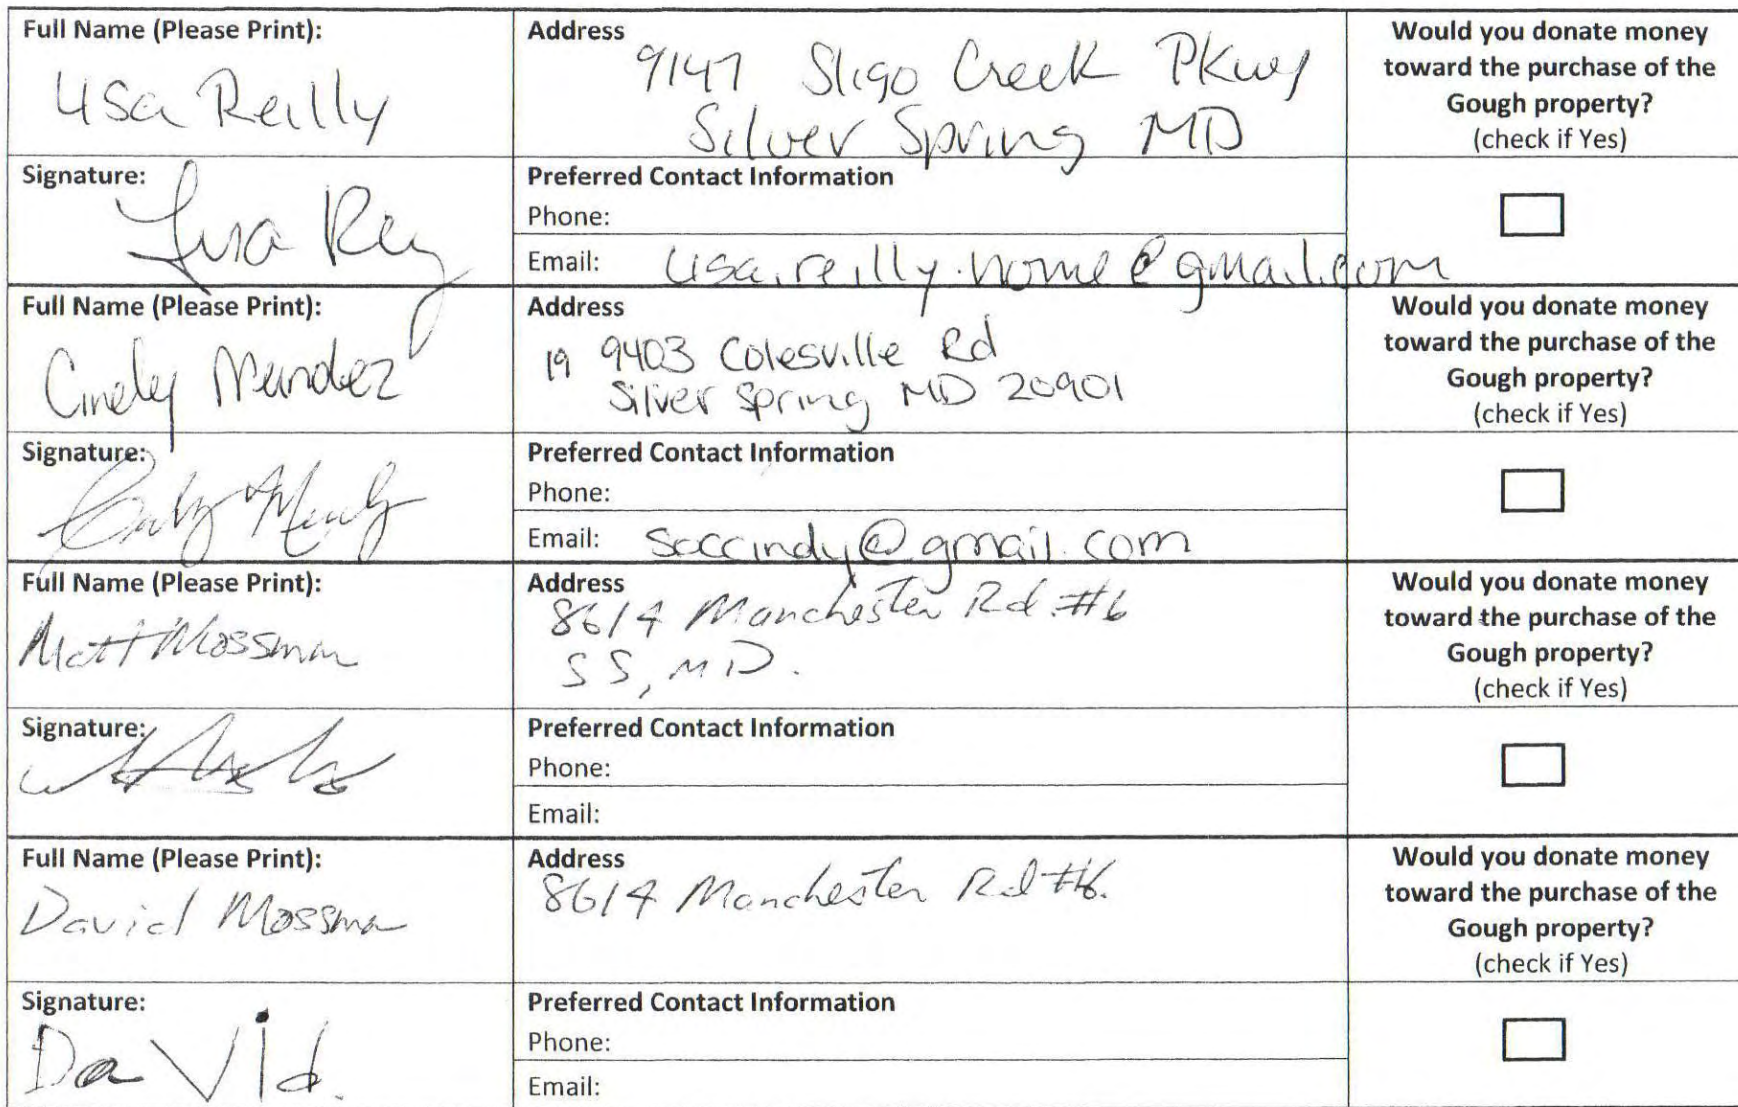 Full Name (Please Print):
Lisa Reilly
Address
9147 Sligo Creek Pkwy
Silver Spring MD
Would you donate money
toward the purchase of the
Gough property?
(check if Yes)
Signature:
Lisa Rey
Preferred Contact Information
Phone:
Email: lisa.reilly.home@gmail.com
Full Name (Please Print):
Cindy Mendez
Address
19 9403 Colesville Rd
Silver Spring MD 20901
Would you donate money
toward the purchase of the
Gough property?
(check if Yes)
Signature:
Preferred Contact Information
Phone:
Email: soccindy@gmail.com
Full Name (Please Print):
Matt Mossman
Address
8614 Manchester Rd. #6
SS, MD.
Would you donate money
toward the purchase of the
Gough property?
(check if Yes)
Signature:
Preferred Contact Information
Phone:
Email:
Full Name (Please Print):
David Mossman
Address
8614 Manchester Rd #6.
Would you donate money
toward the purchase of the
Gough property?
(check if Yes)
Signature:
DaVid.
Preferred Contact Information
Phone:
Email: